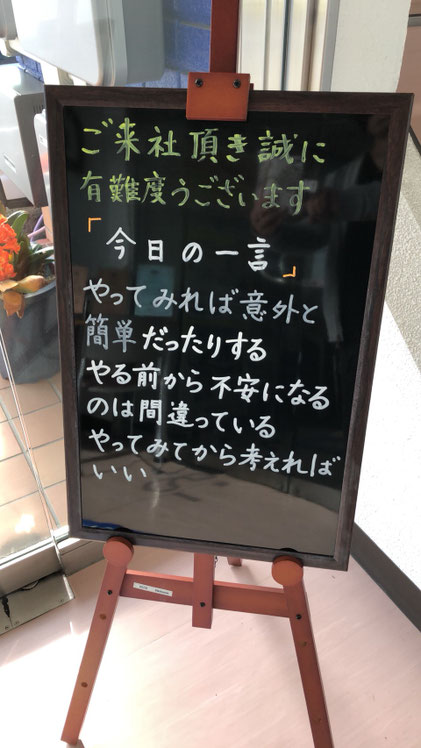 ご来社頂き誠に
有難度うございます
「今日の一言」
やってみれば意外と
簡単だったりする
やる前から不安になる
のは間違っている
やってみてから考えれば
いい